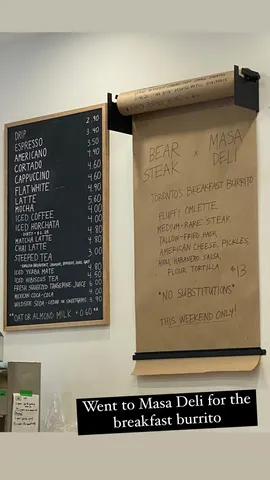 DRIP 2.90
ESPRESSO 3.40
AMERICANO 3.50
CORTADO 3.90
CAPPUCCINO 4.60
FLAT WHITE 4.60
LATTE
MOCHA 5.60
ICED COFFEE 4.00
ICED HORCHATA 4.00
MATCHA LATTE 4.80
CHAI LATTE 4.80
STEEPED TEA 3.00
ICED YERBA MATE
ICED HIBISCUS TEA 4.50
FRESH SQUEEZED TANGERINE JUICE 6.00
MEXICAN COCA-COLA 4.00
WILDSIDE SODA
*OAT OR ALMOND MILK +0.60 **
BEAR STEAK × MASA DELI
TORONTO'S BREAKFAST BURRITO
FLUFFY OMLETTE
MEDIUM-RARE STEAK
TALLOW-FRIED HASH,
AMERICAN CHEESE, PICKLES,
AIOLI, HABANERO SALSA,
FLOUR TORTILLA $13
*NO SUBSTITUTIONS*
THIS WEEKEND ONLY!
Went to Masa Deli for the
breakfast burrito